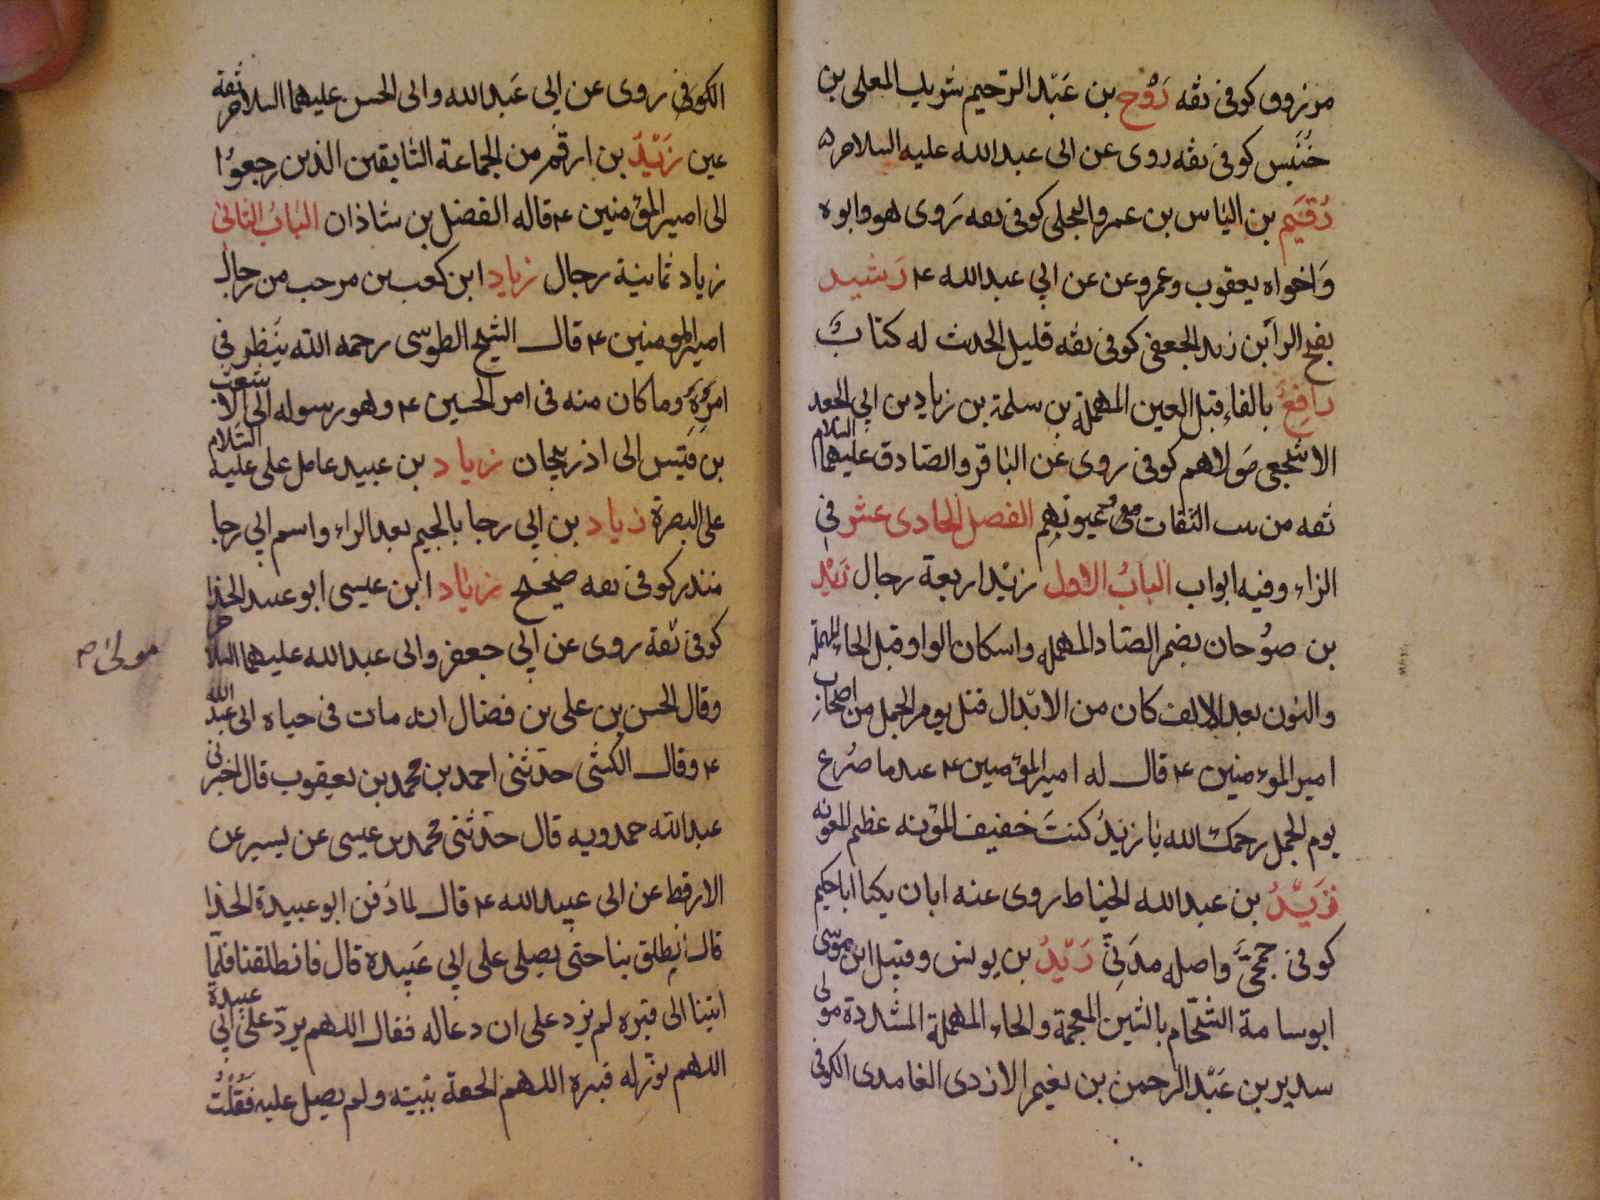 مرزوق كوفى ثقه رَوْح بن عَبْد الرحيم شريك المعلى بن
خُنَيس كوفى ثقه روى عن ابى عبدالله عليه السلام ٥
رُقَيم بن الياس بن عمرو البجلى كوفى ثقه رَوى هو وابوه
وَاخواه يعقوب وعمرو عن عن ابي عبدالله ۴ رَشيد
بفتح الرا بن زيد الجعفى كوفى ثقه قليل الحديث له كتابَّ
رافِعُ بالفاء قبل العين المهملة بن سلمة بن زياد بن ابي الجعد
الاشجعى مَولاهم كوفى روى عن الباقر والصادق عليهما السلام
ثقه من بيت الثقات وعيونهم الفصل الحادى عشر في
الزاء وفيه ابواب البابُ الاول زيد اربعة رجال زيْد
بن صُوحان بضم الصاد المهمله واسكان الواو قبل الحاء المهملة
والنون بعد الالف كان من الابْدال قتل يوم الجمل من اصحاب
امير المومنين ۴ قال له امير المؤمنين ۴ عندما صُرع
يوم الجمل رحمك الله يا زيْدُ كنتَ خفيف المؤنه عظم المعونه
زَيْدُ بن عبدالله الحناط روى عنه ابان يكنا اباحكيم
كوفى جمحىَّ واصله مدَنِيّ زَيْدُ بن يونس وقيل ابن موسى
ابوسامة الشحّام بالشين المعجمة والحاء المهملة المشددة مولى
سدير بن عَبْد الرحمن بن نعيم الازدى الغامدى الكوفى
الكوفى روى عن ابي عَبدالله والى الحسن عليهما السلام ثقة
عين زَيْدُ بن ارقم من الجماعة السابقين الذين رجعوُا
الى امير المؤمنين ۴ قاله الفضل بن شاذان البابُ الثانى
زياد ثمانية رجال زياد ابن كعب بن مرحب من رجال
امير المومنين ۴ قال الشيخ الطوسى رحمه الله ينظر في
امرَهَ وما كان منه فى امر الحسين ۴ وهو رسوله الى الاشعث
بن قيس الى اذربيجان زياد بن عبيد عامل على عليه السلام
على البصرة زياد بن ابي رجا بالجيم بعد الراء واسم ابي رجا
منذر كوفى ثقه صحيح زياد ابن عيسى ابو عبيد الحذا
كوفى ثقة روى عن ابي جعفر والى عبدالله عليهما السلام
مولى م
وقال الحسن بن على بن فضال انه مات فى حياه ابى عبد الله
۴ وقال الكشى حدثنى احمد بن محمد بن يعقوب قال اخبرنى
عبدالله حمدويه قال حدثنى محمد بن عيسى عن يسير عن
الارقط عن ابى عبدالله ۴ قال لما دُفن ابو عبيدة الحذا
قال انطلق بنا حتى نصلى على ابي عَبيدة قال فانطلقنا فلمّا
اتينا الى قبره لم يزد على ان دعا له فقال اللهم برّد على ابي عبيدة
اللهم نوّر له قبره اللهم الحقه بنبيّه ولم يصل عليه فَقُلْتُ